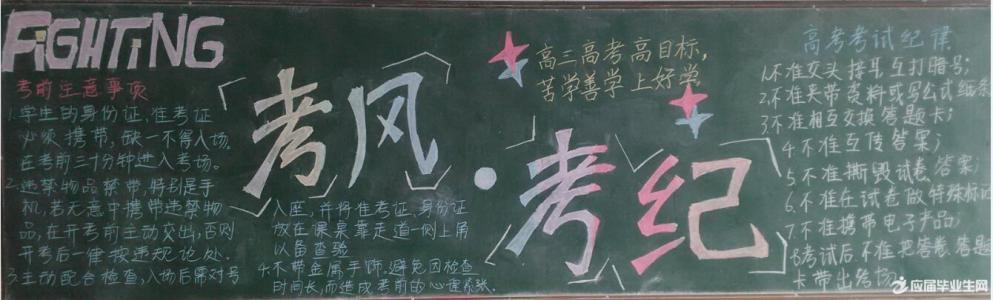 FiGHTiNG
考前注意事项
1.学生的身份证,准考证
必须携带,缺一不得入场.
在考前三十分钟进入考场。
2.违禁物品禁带,特别是手
机,若无意中携带违禁物
品,在开考前主动交出,否则
开考后一律按违规论处.
3.主动配合检查,入场后需对号
入座,并将准考证、身份证
放在课桌靠走道一侧上角
以备查验
4.不带金属手饰,避免因检查
时间长,而造成考前的心理紧张.
考风·考纪
高三高考高目标,
苦学善学上好学
高考考试纪律
1.不准交头接耳互打暗号;
2.不准夹带资料或写公式纸条
3.不准相互交换答题卡;
4.不准互传答案;
5.不准撕毁试卷答案;
6.不准在试卷做特殊标记
7.不准携带电子产品
8.考试后不准把答卷、答题
卡带出考场
应届毕业生网